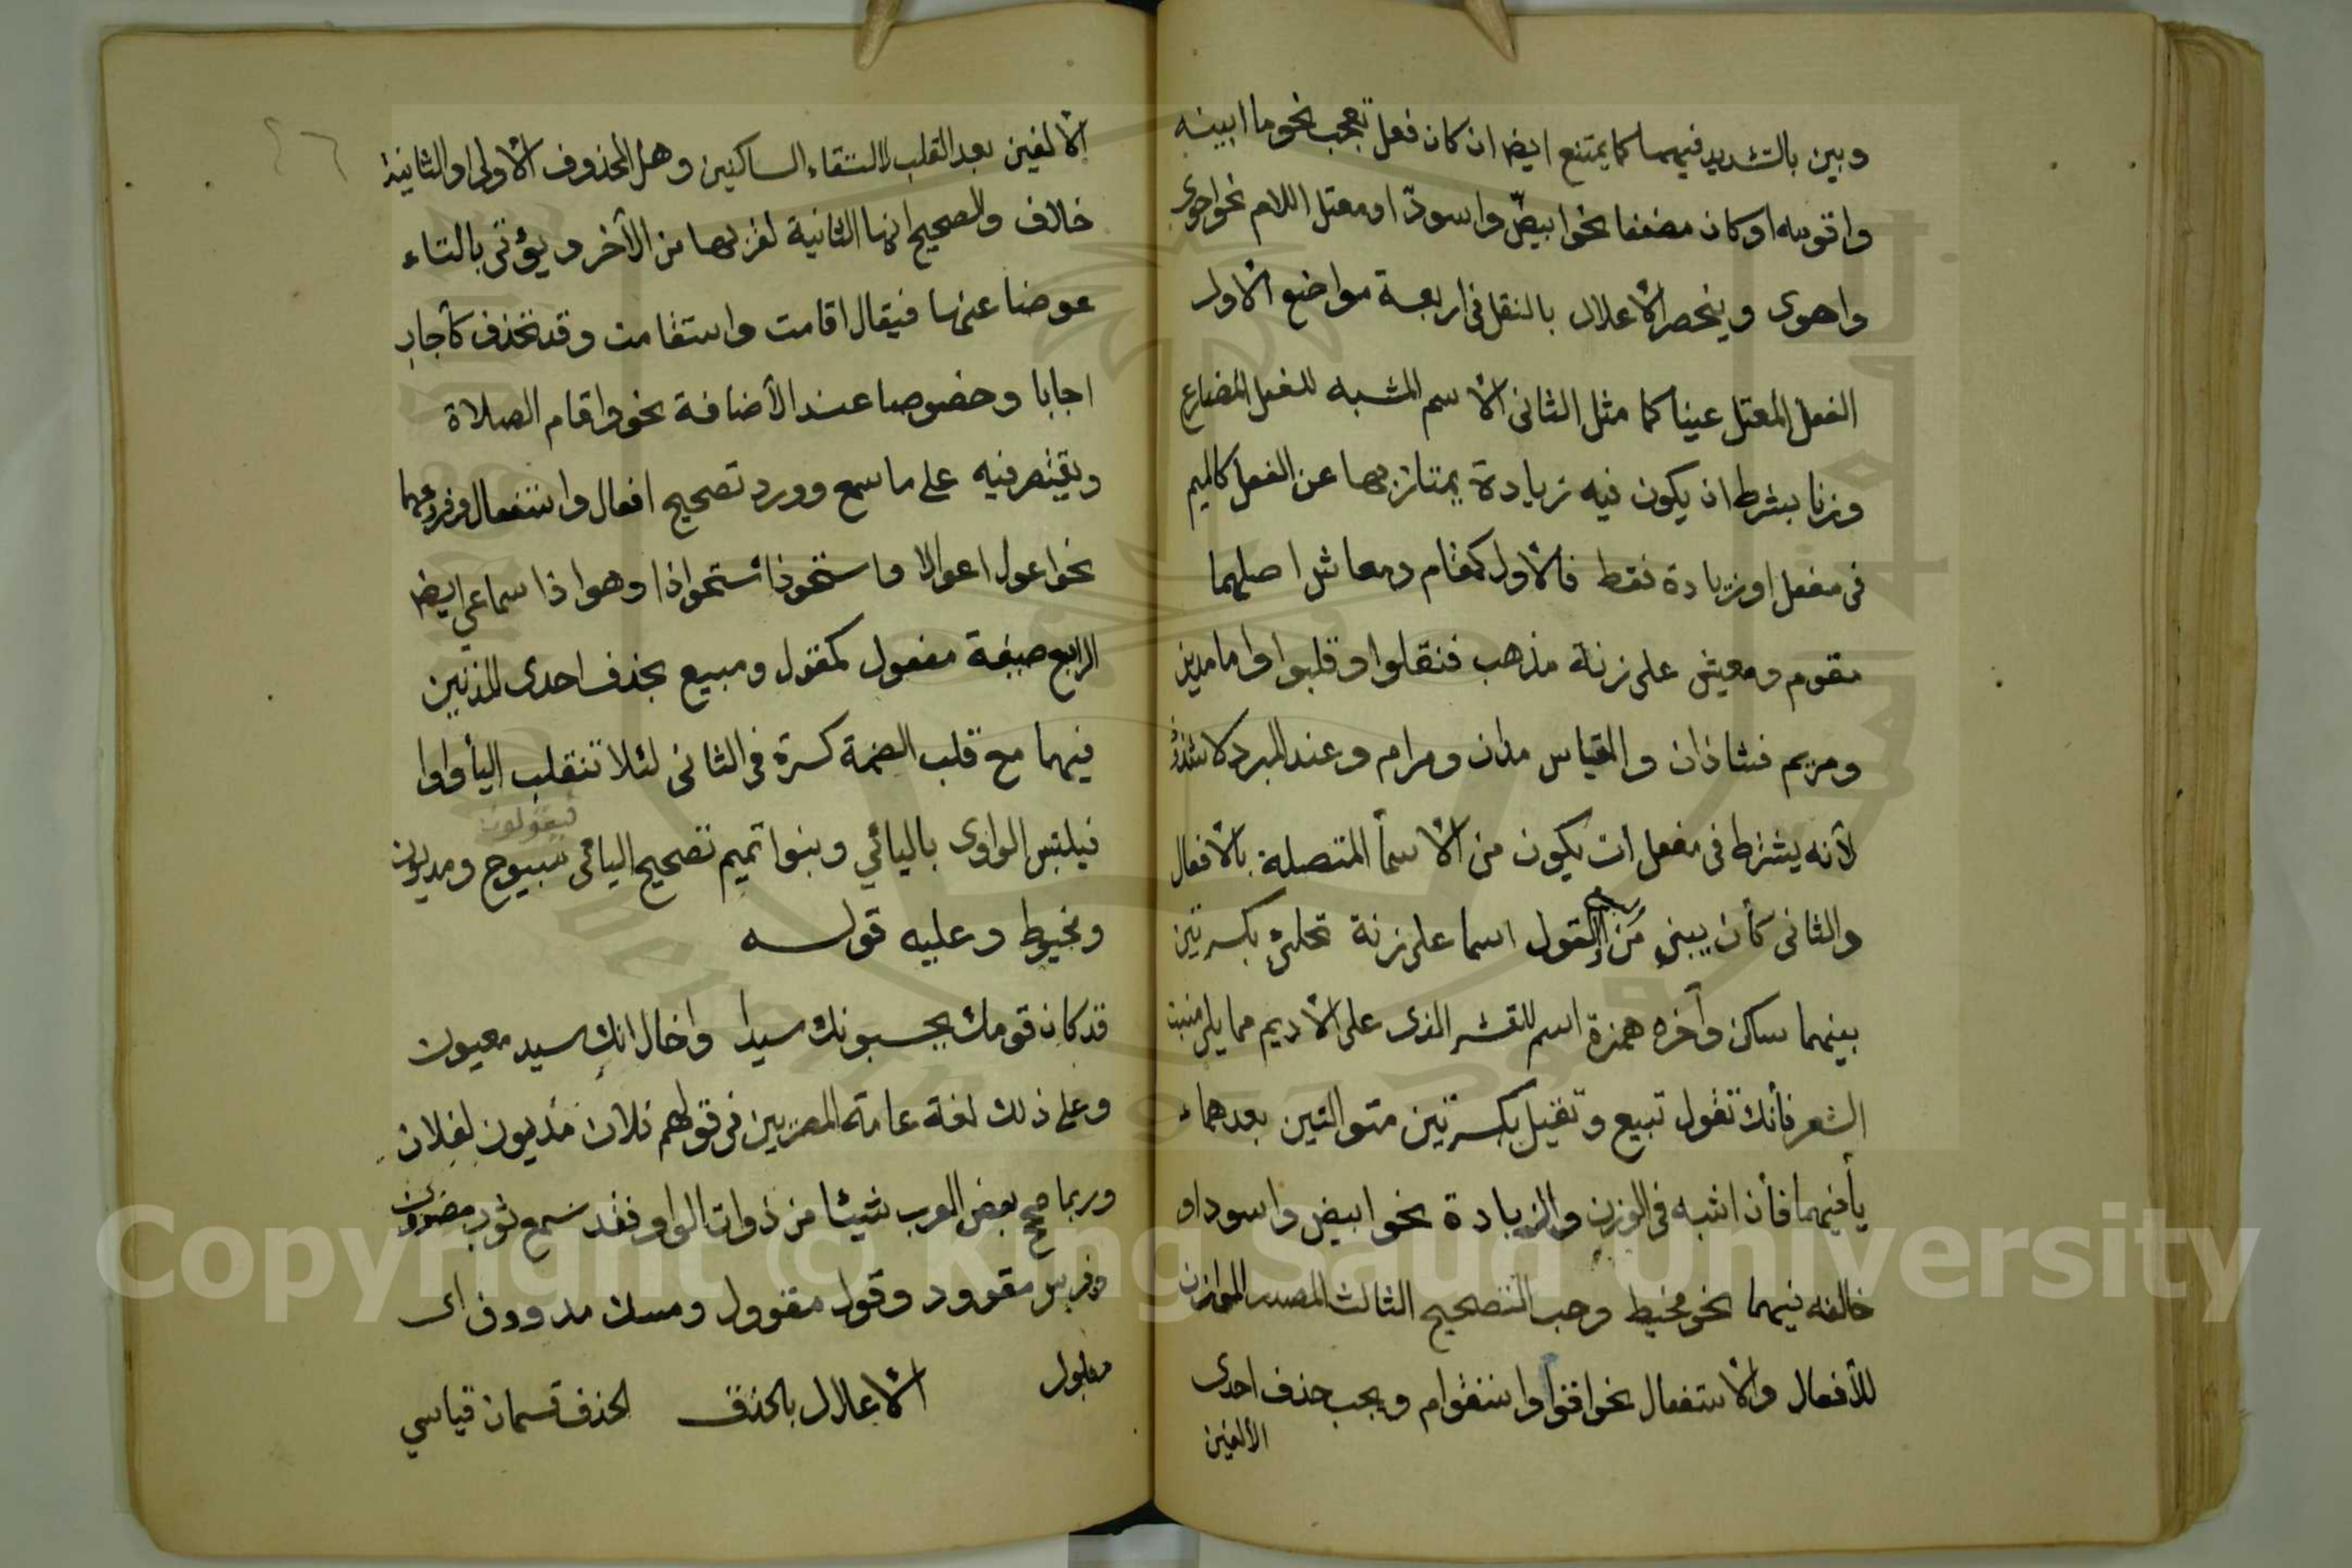 وبين بالتشديد فيهما كما يمتنع ايضا ان كان فعل تعجب نحو ما ابينه
واقومه او كان مضعفا نحو ابيضّ واسودّ او معتل اللام نحو احوى
واهوى وينحصر الأعلال بالنقل فى اربعة مواضع الأول
الفعل المعتل عينا كما مثل الثانى الأسم المشبه للفعل المضارع
وزنا بشرط ان يكون فيه زيادة يمتاز بها عن الفعل كالميم
فى مفعل او زيادة فقط فالأول كمقام ومعاش اصلهما
مقوم ومعيش على زنة مذهب فنقلوا وقلبوا واما مدين
ومريم فشاذان والقياس مدان ومرام وعند المبرد لا شذوذ
لأنه يشترط فى مفعل ان يكون من الأسمأ المتصلة بالأفعال
والثانى كأن يبنى من البيع او القول اسما على زنة تحلئ بكسرتين
بينهما ساكن وآخره همزة اسم للقشر الذى على الأديم مما يلى منبت
الشعر فأنك تقول تبيع وتقيل بكسرتين متواليتين بعدهما
يأ فيهما فأن اشبه فى الوزن والزيادة نحو ابيض واسود او
خالفه فيهما نحو مخيط وجب التصحيح الثالث المصدر الموازن
للأفعال والأستفعال نحو اقوام واستقوام ويجب حذف احدى
الألفين
الألفين بعد القلب لالتقاء الساكنين وهل المحذوف الأولى او الثانية
خلاف والصحيح انها الثانية لقربها من الآخر ويؤتى بالتاء
عوضا عنها فيقال اقامت واستقامت وقد تحذف كأجاب
اجابا وخصوصا عند الأضافة نحو واقام الصلاة
ويقتصر فيه على ما سمع وورد تصحيح افعال واستفعال وفروعهما
نحو اعول اعوالا واستحوذ استحواذا وهو اذا سماعي ايضا
الرابع صيغة مفعول كمقول ومبيع بحذف احدى المدتين
فيهما مع قلب الضمة كسرة فى الثانى لئلا تنقلب اليأ واوا
فيلتبس الواوى باليائي وبنوا تميم تصحيح اليائى فيقولون مبيوع ومديون
ومخيوط وعليه قوله
قد كان قومك يحسبونك سيدا واخال انك سيد معيون
وعلى ذلك لغة عامة المصريين فى قولهم فلان مديون لفلان
وربما صحح بعض العرب شيئا من ذوات الواو فقد سمع ثوب مصوون
وفرس مقوود وقول مقوول ومسك مدووف اى
مبلول الأعلال بالحذف الحذف قسمان قياسي
Copyright © King Saud University